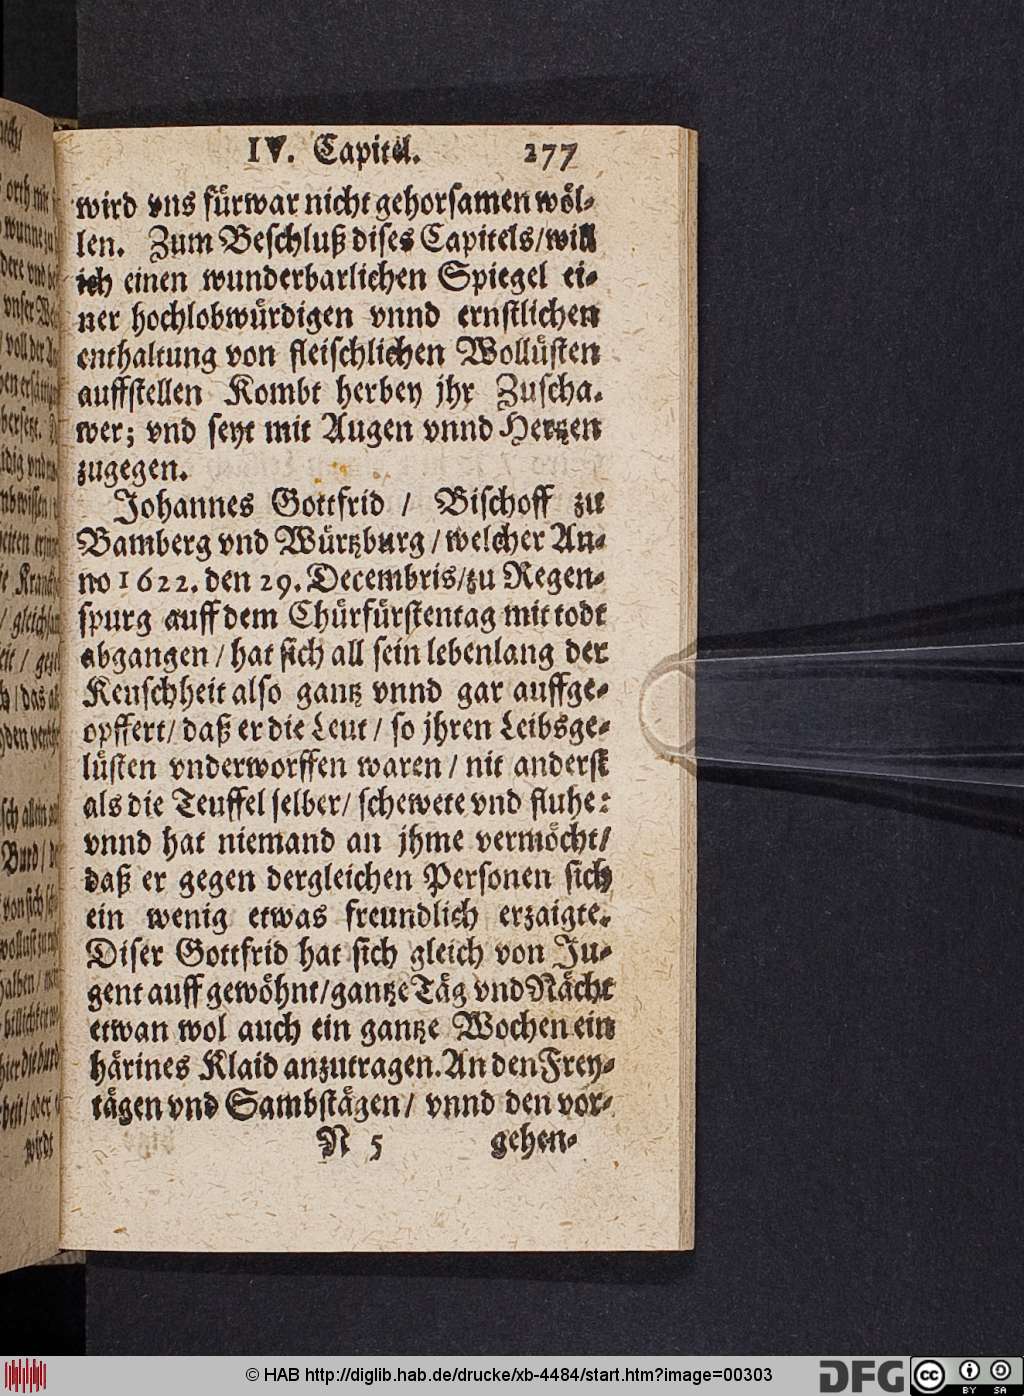 IV. Capitel. 277
wird vns fürwar nicht gehorsamen wöl-
len. Zum Beschluß dises Capitels/will
ich einen wunderbarlichen Spiegel ei-
ner hochlobwürdigen vnnd ernstlichen
enthaltung von fleischlichen Wollüsten
auffstellen Kombt herbey jhr Zuscha-
wer; vnd seyt mit Augen vnnd Hertzen
zugegen.
Johannes Gottfrid / Bischoff zu
Bamberg vnd Würtzburg/welcher An-
no 1622. den 29. Decembris/zu Regen-
spurg auff dem Chürfürstentag mit todt
abgangen/hat sich all sein lebenlang der
Keuschheit also gantz vnnd gar auffge-
opffert/daß er die Leut/so jhren Leibsge-
lüsten vnderworffen waren/nit anderst
als die Teuffel selber/schewete vnd fluhe:
vnnd hat niemand an jhme vermöcht/
daß er gegen dergleichen Personen sich
ein wenig etwas freundlich erzaigte.
Diser Gottfrid hat sich gleich von Ju-
gent auff gewöhnt/gantze Täg vnd Nächt
etwan wol auch ein gantze Wochen ein
härines Klaid anzutragen. An den Frey-
tägen vnd Sambstägen/vnnd den vor-
N 5 gehen-
© HAB http://diglib.hab.de/drucke/xb-4484/start.htm?image=00303
DFG
cc BY SA